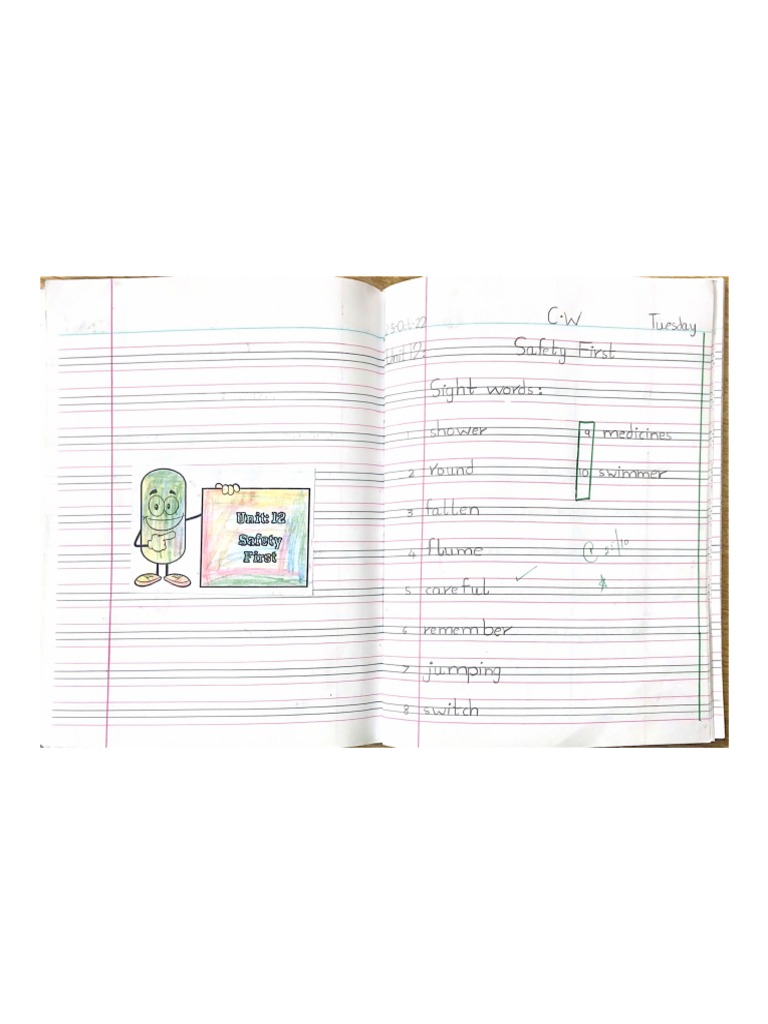 Unit 12
Safety
First
C.W Tuesday
25-Oct-22
Unit 12: Safety First
Sight words:
1 shower
2 round
3 fallen
4 flume
5 careful
6 remember
7 jumping
8 switch
9 medicines
10 swimmer